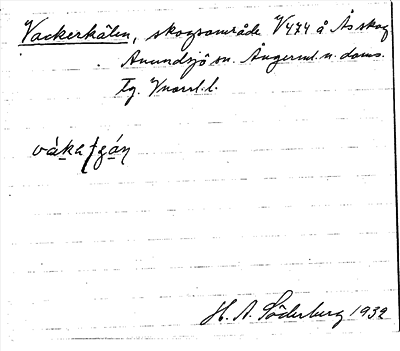 Vackerkälen, skogsområde V474 å Ås skog
Anundsjö sn. Ångerml. n. doms.
fg. Vnorrl. l.
H. A. Söderberg 1932